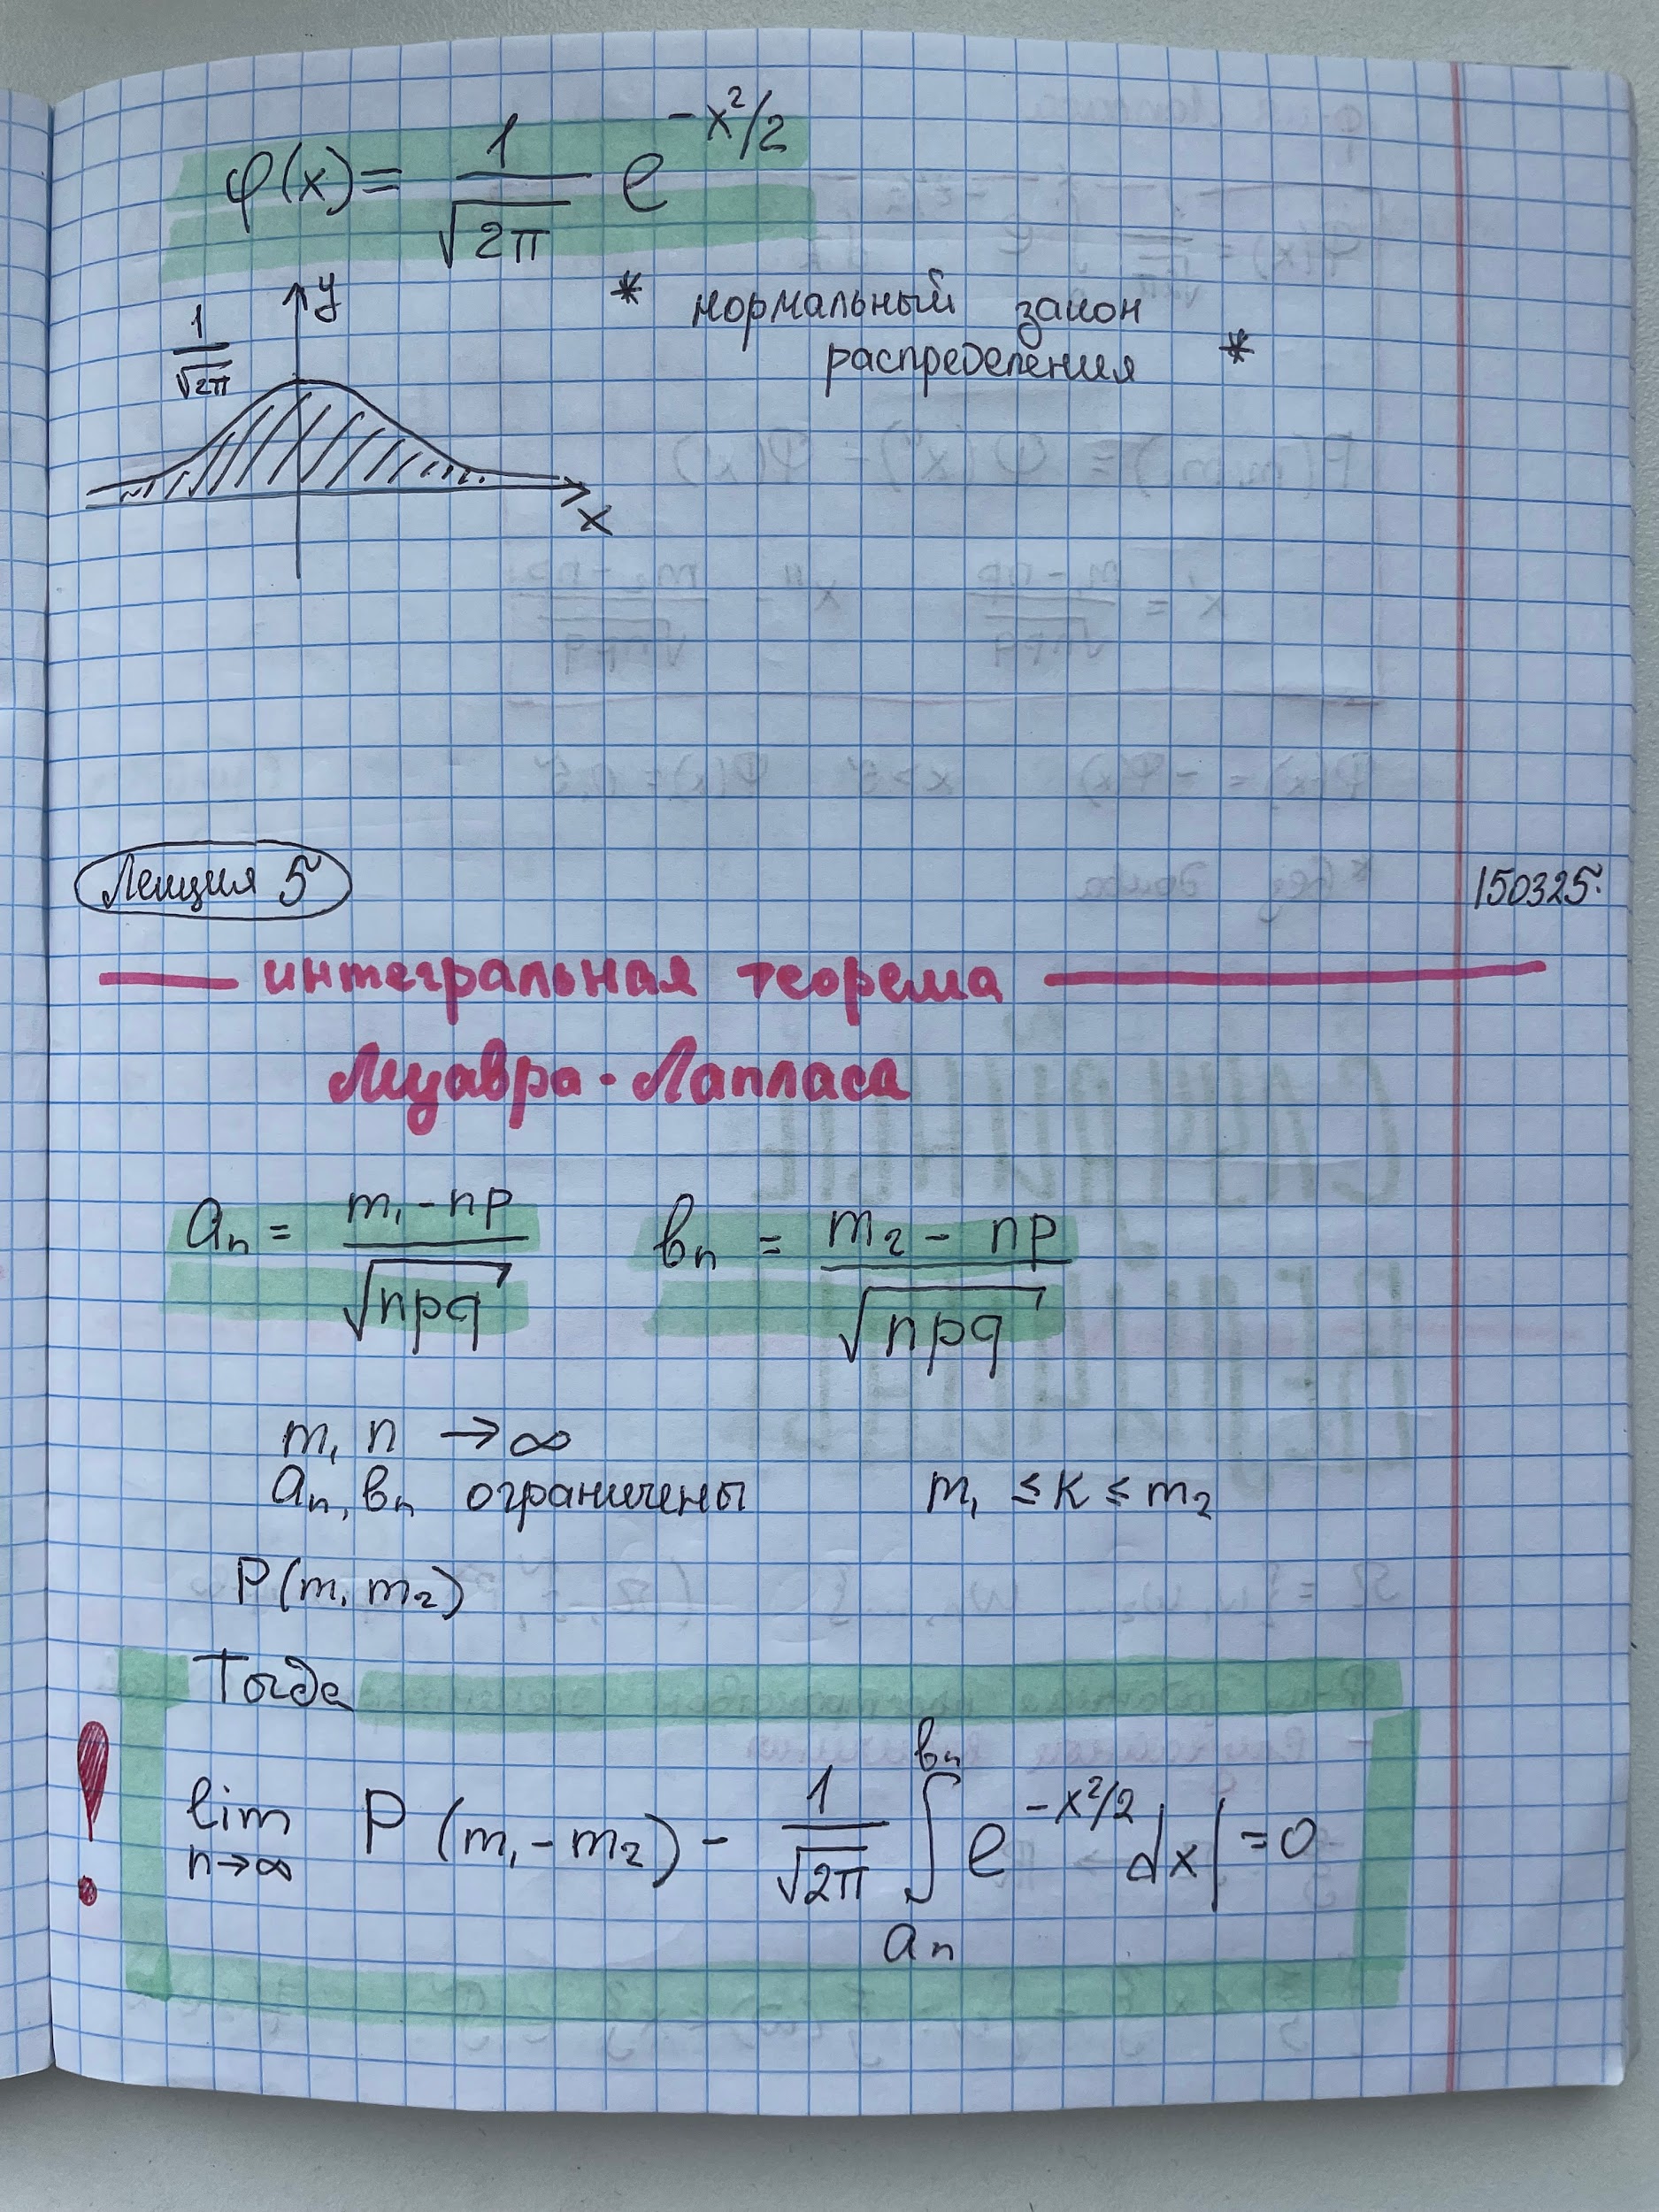 φ(x) = 1/√2π e^(-x²/2)
y
1/√2π
* нормальный закон
распределения *
x
Лекция 5
150325.
интегральная теорема
Муавра - Лапласа
aₙ = (m₁ - np)/√npq вₙ = (m₂ - np)/√npq
m, n → ∞
aₙ, вₙ ограничены m₁ ≤ k ≤ m₂
P(m₁ m₂)
Тогда
! lim n→∞ P (m₁ - m₂) - 1/√2π ∫ aₙ вₙ e^(-x²/2) dx| = 0